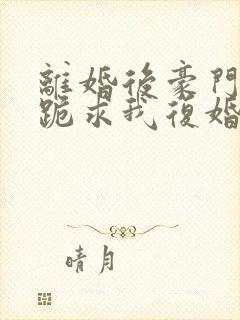 離婚後豪門
跪求我復婚
晴月